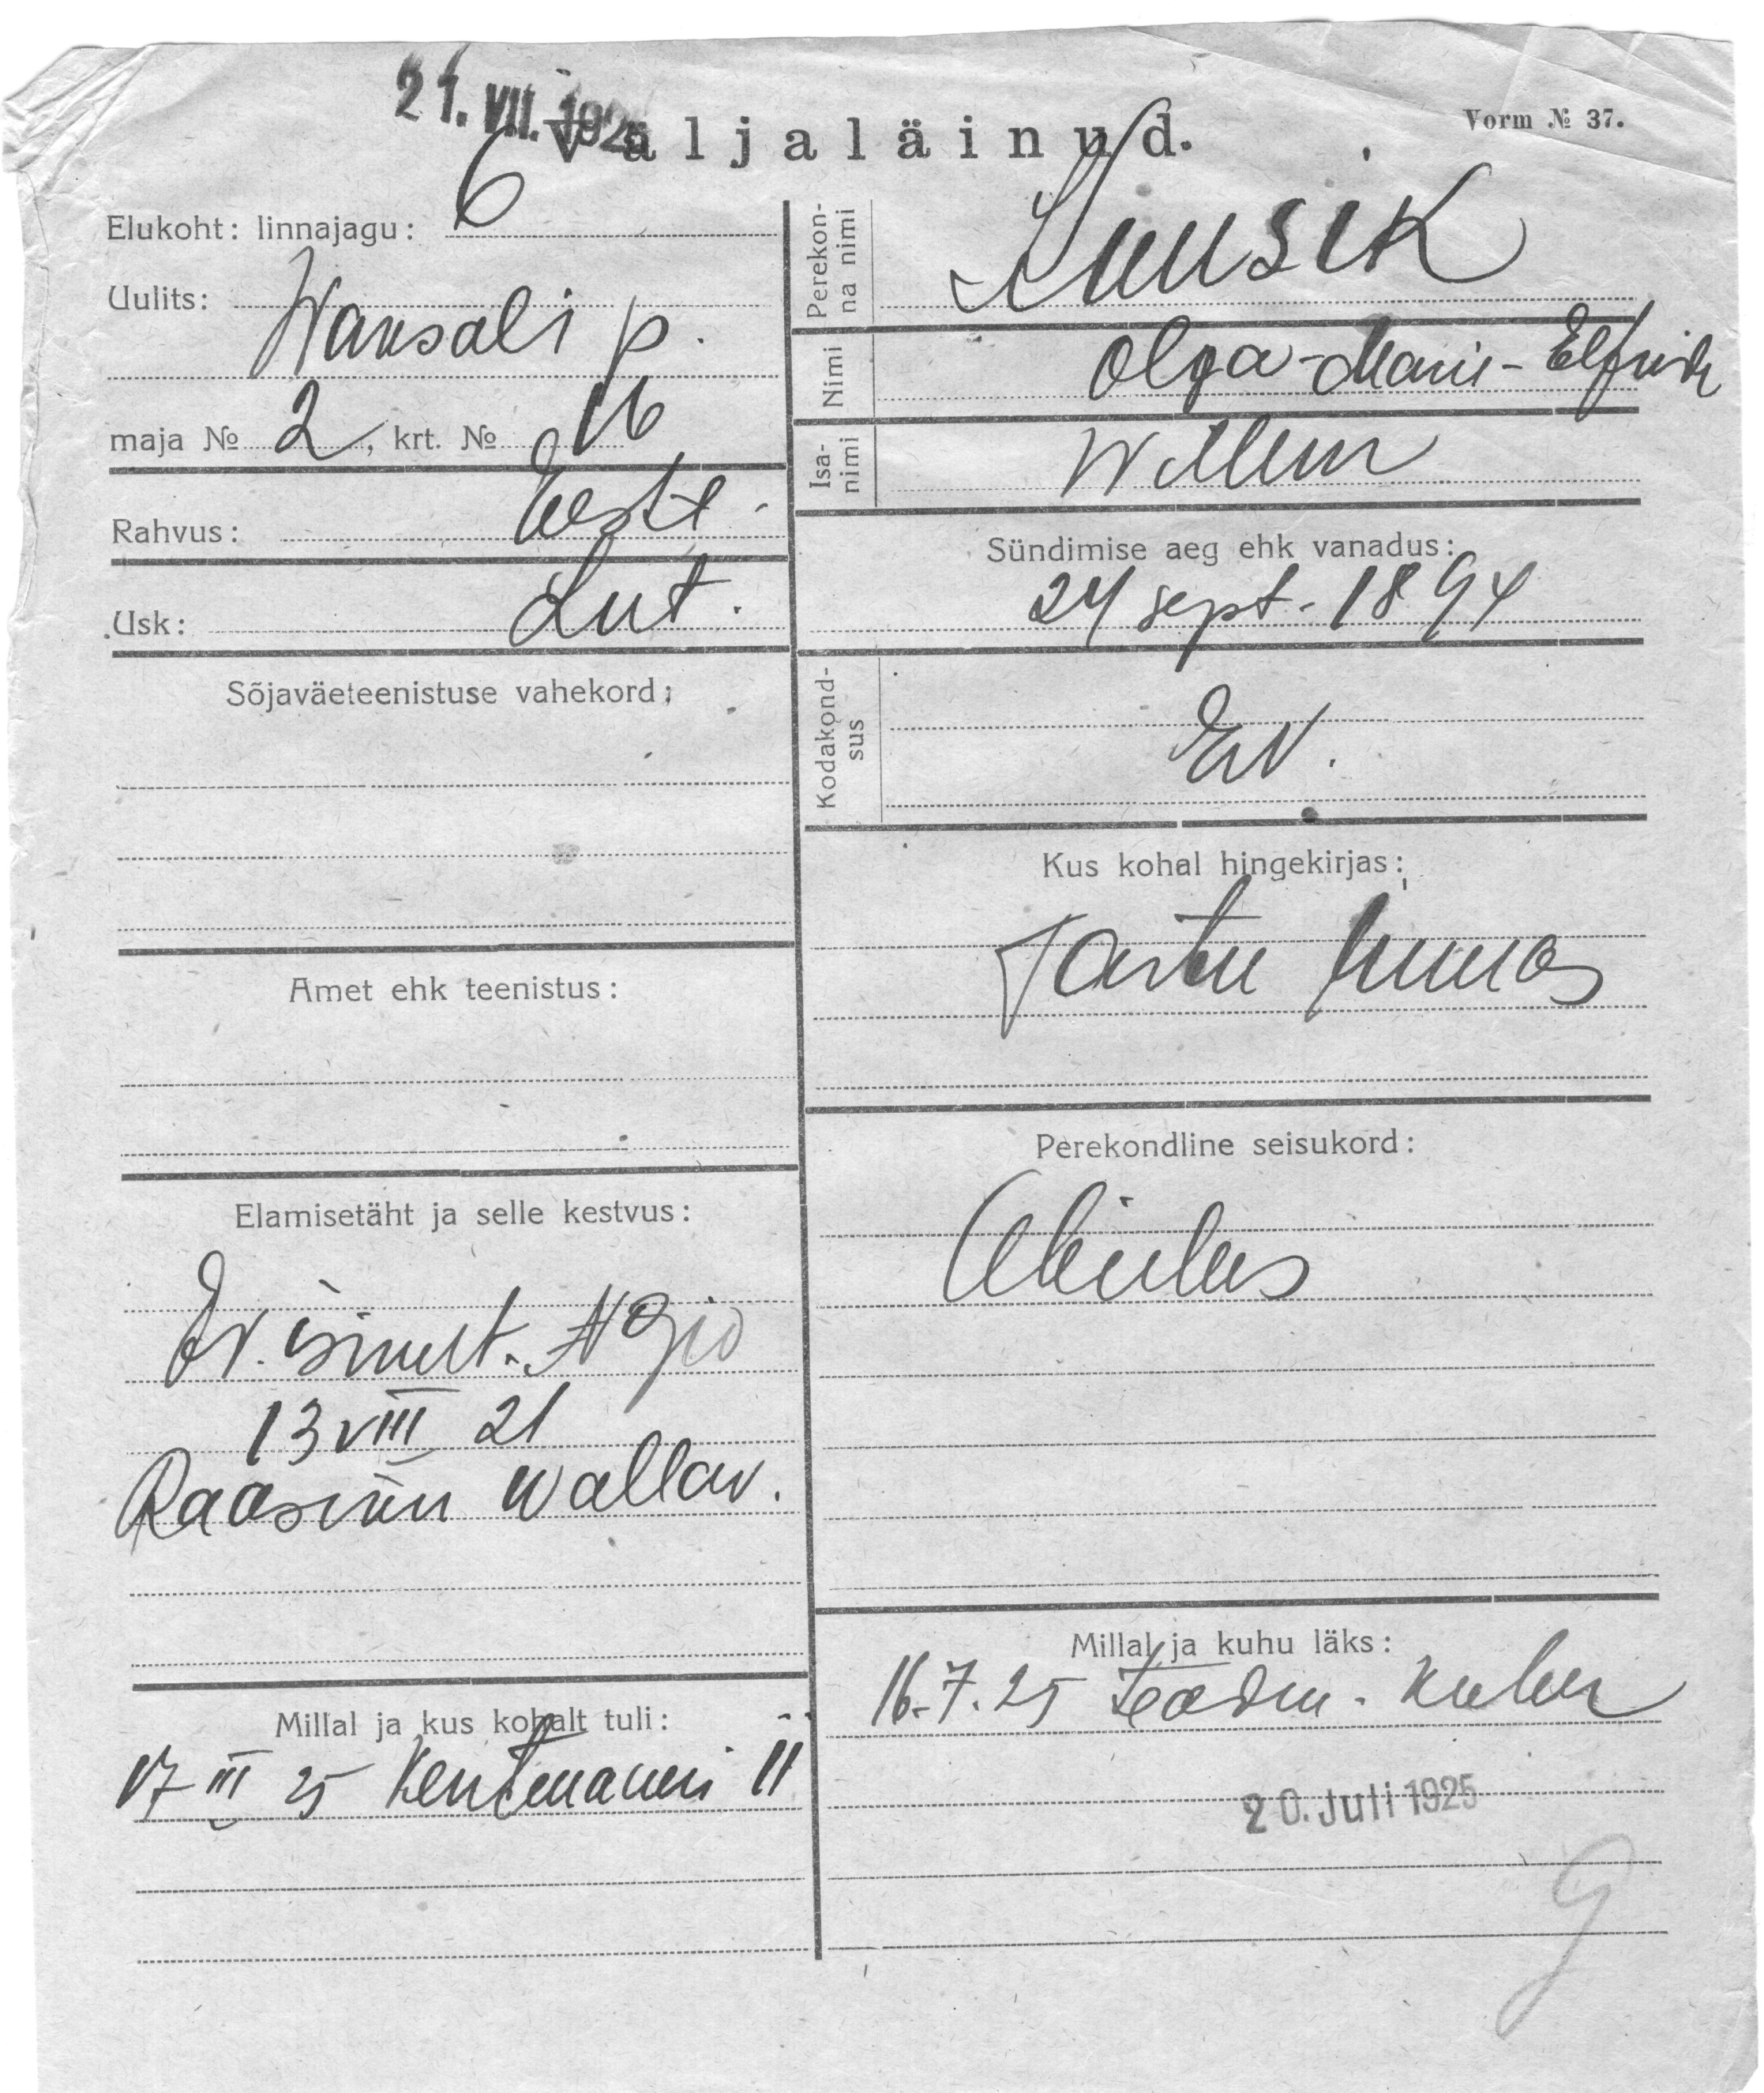 21. VII. 1925
Väljaläinud.
Vorm № 37.
Elukoht: linnajagu: 6
Uulits:
Waksali p.
maja № 2, krt. № 16
Rahvus: Eesti.
Usk: Lut.
Sõjaväeteenistuse vahekord:
Amet ehk teenistus:
Elamisetäht ja selle kestvus:
Ev. isikut. №
13 VIII 21
Raasiku Wallav.
Millal ja kus kohalt tuli:
17 III 25 Kentmanni 11
Perekonna nimi
Kuusik
Nimi Olga-Marie-Elfriede
Isanimi Willem
Sündimise aeg ehk vanadus:
24 sept. 1894
Kodakondsus
Ev.
Kus kohal hingekirjas:
Tartu linnas
Perekondline seisukord:
Abielus
Millal ja kuhu läks:
16.7.25
20. Juli 1925